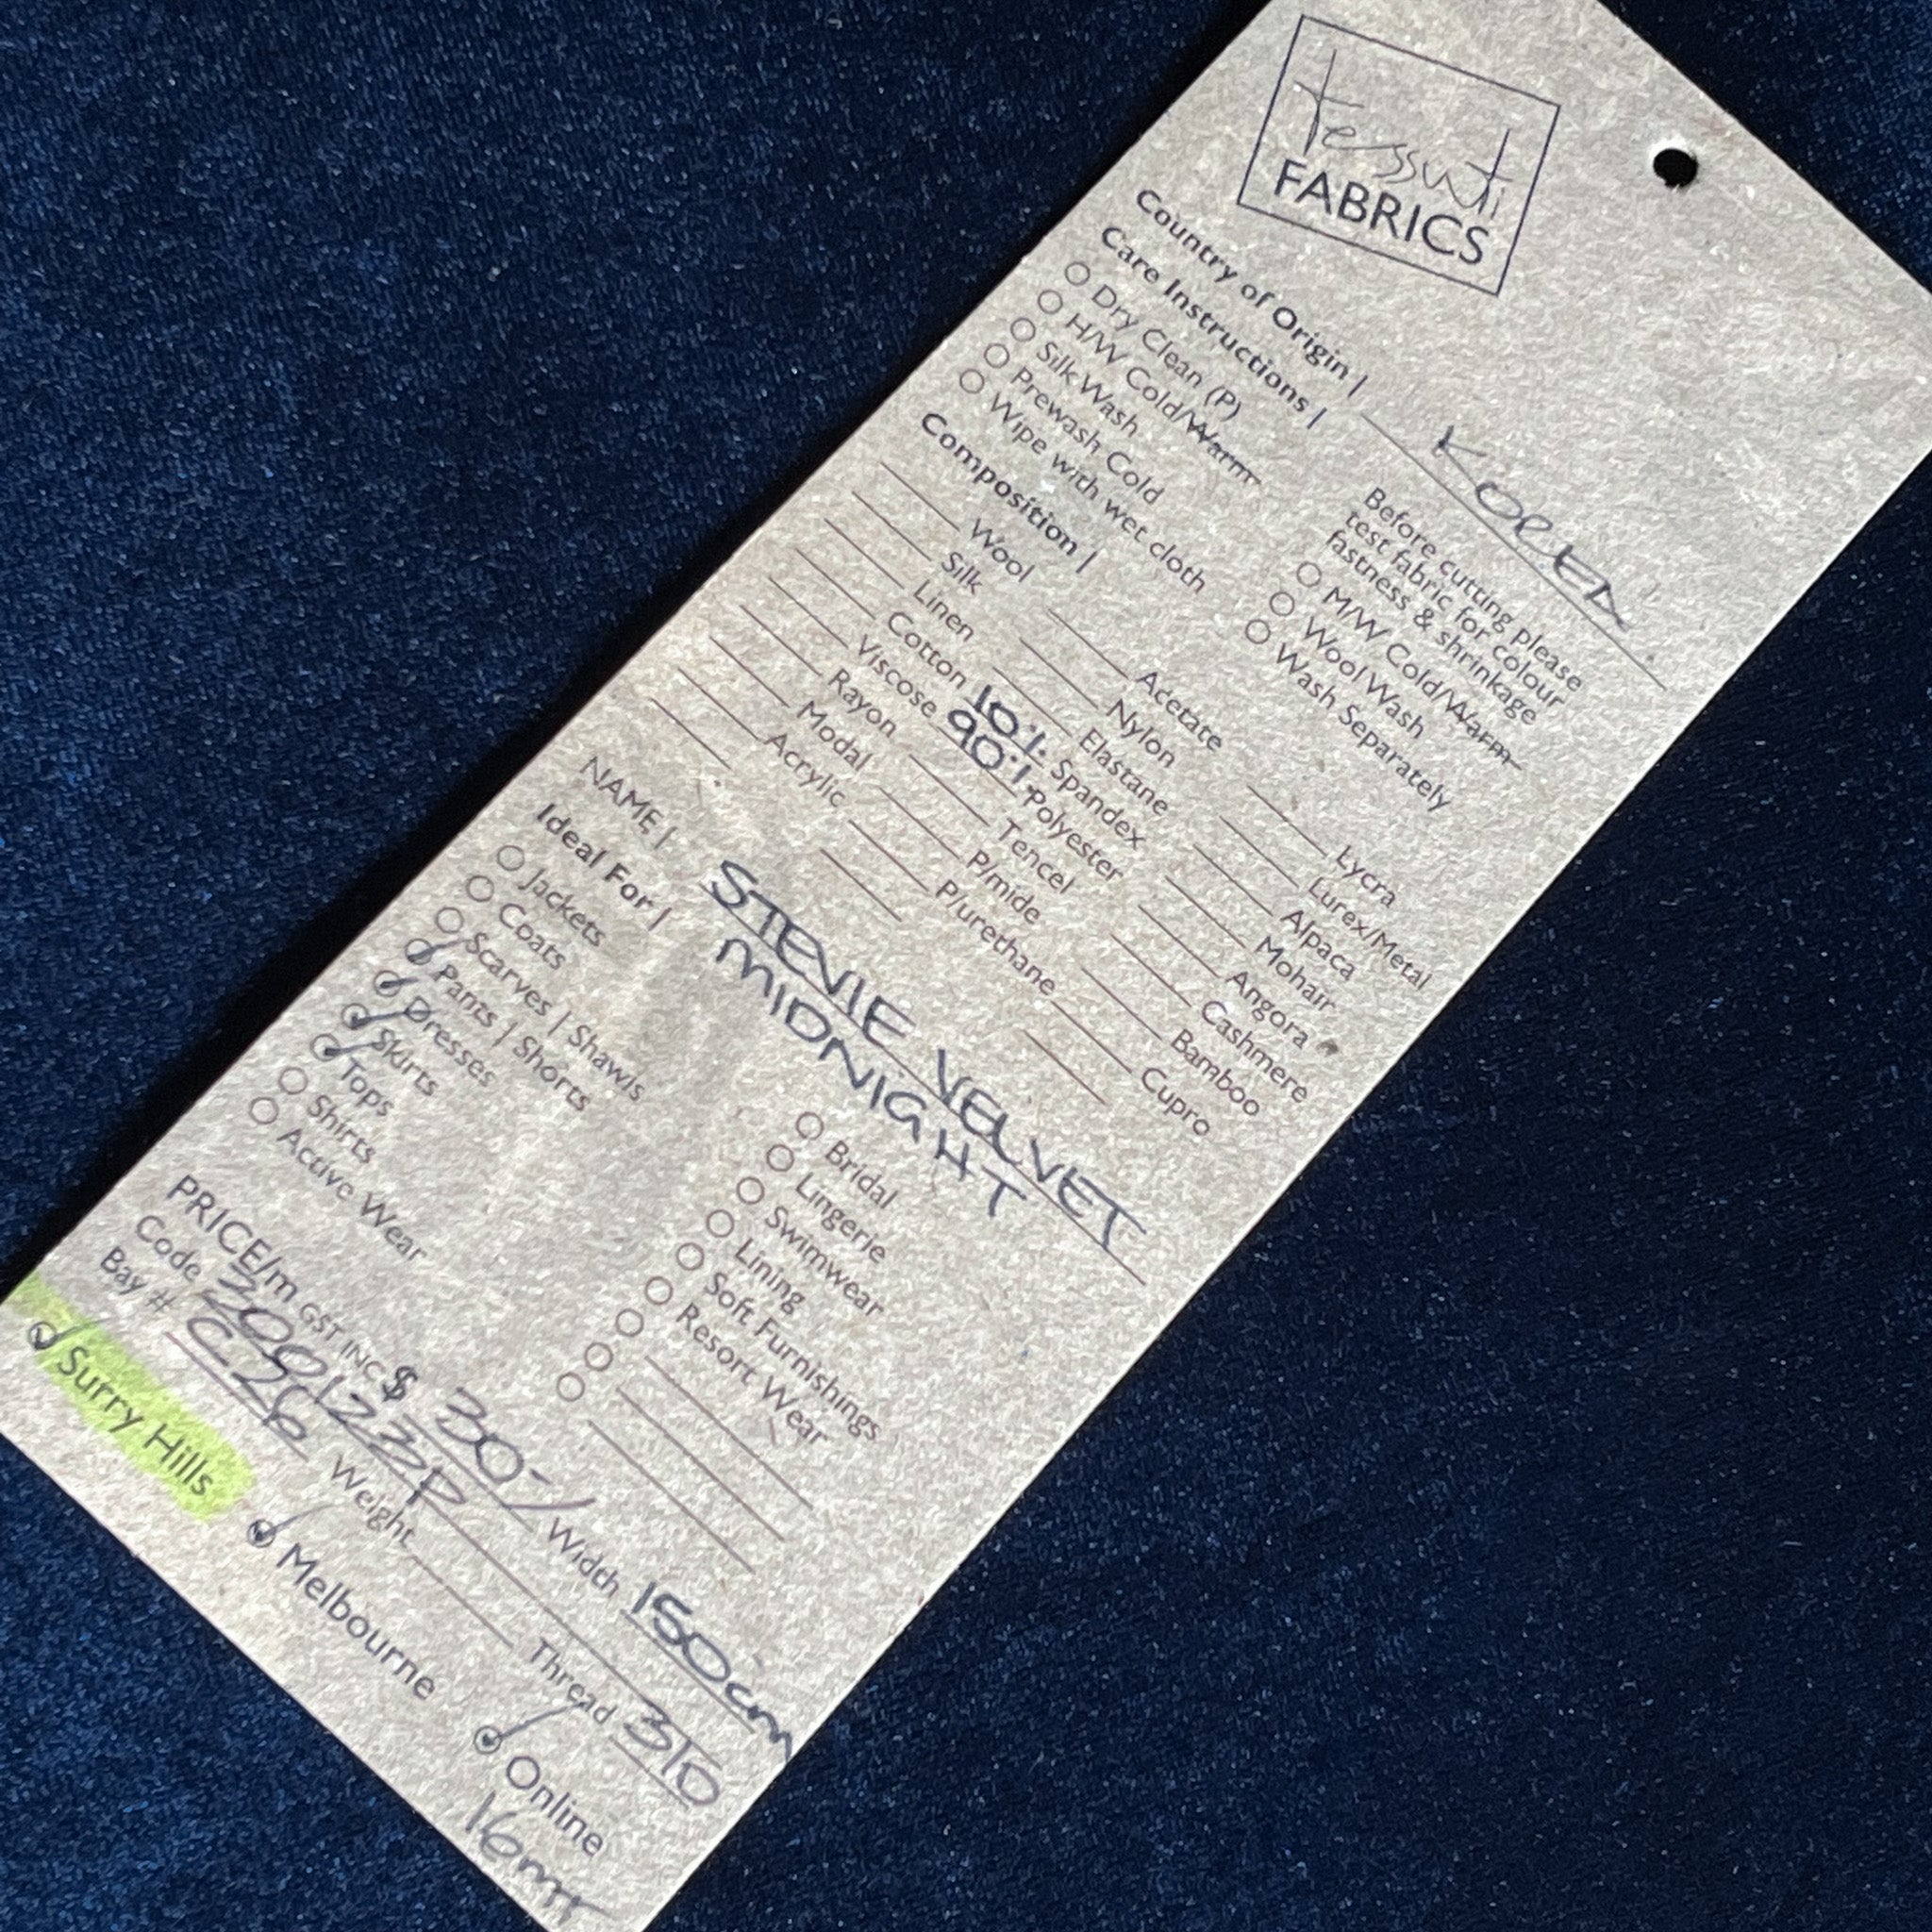 tessuti
FABRICS
Country of Origin | KOREA
Care Instructions |
Dry Clean (P)
H/W Cold/Warm
Silk Wash
Prewash Cold
Wipe with wet cloth
Before cutting please
test fabric for colour
fastness & shrinkage
M/W Cold/Warm
Wool Wash
Wash Separately
Composition |
Wool
Silk
Linen
Cotton
Viscose
Rayon
Modal
Acrylic
Acetate
Nylon
Elastane
10% Spandex
90% Polyester
Tencel
P/mide
P/urethane
Lycra
Lurex/Metal
Alpaca
Mohair
Angora
Cashmere
Bamboo
Cupro
NAME | STEVIE VELVET
MIDNIGHT
Ideal For |
Jackets
Coats
Scarves | Shawls
Pants | Shorts
Dresses
Skirts
Tops
Shirts
Active Wear
Bridal
Lingerie
Swimwear
Lining
Soft Furnishings
Resort Wear
PRICE/m GST INC $ 30-/ Width 150cm
Code 200123P
Bay # C26 Weight Thread 310
Surry Hills Melbourne Online
16mtr